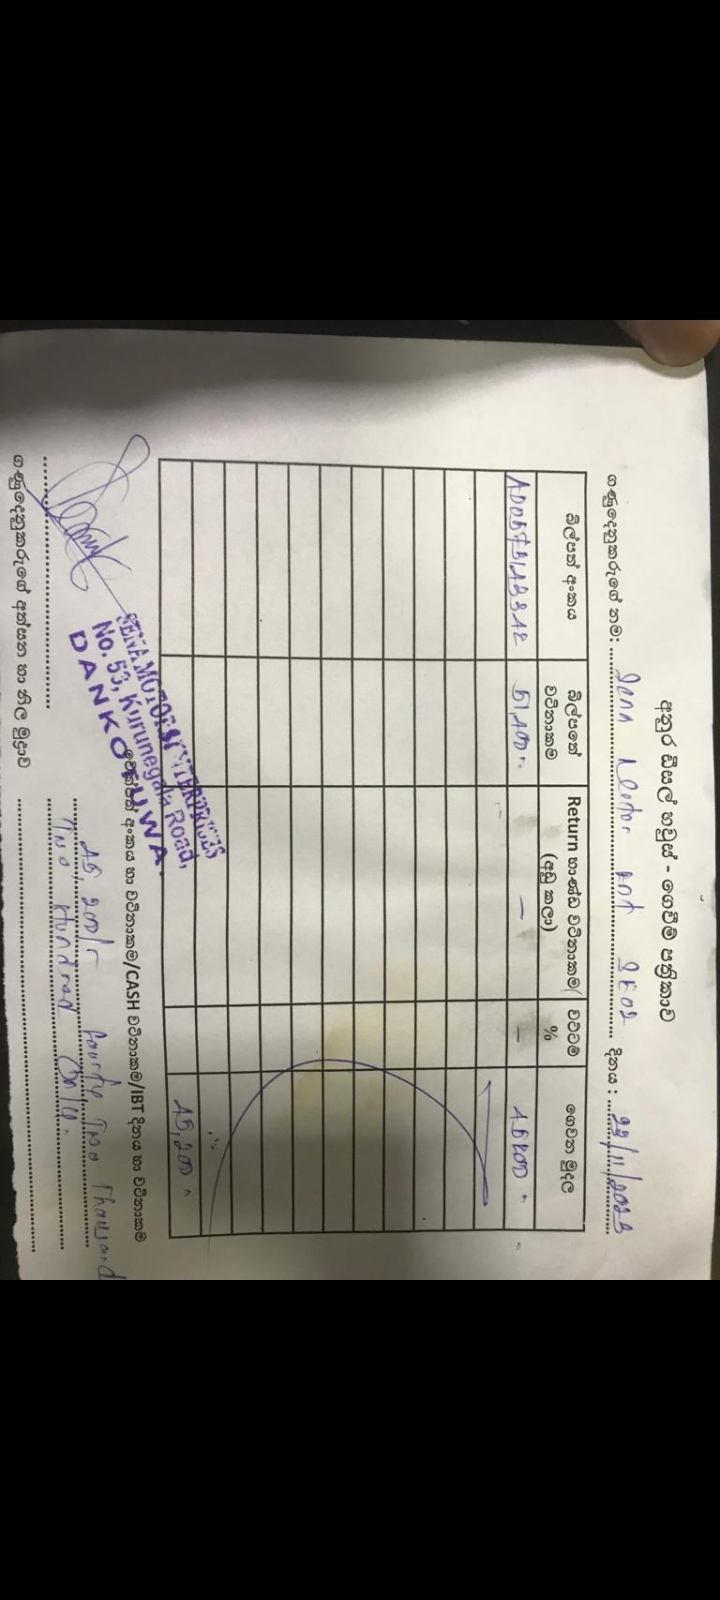 අනුර ඩීසල් හවුස් - ගෙවීම් පත්‍රිකාව
ගණුදෙනුකරුගේ නම: Sena Motor Ent දිනය : 29/11/2023
බිල්පත් අංකය
බිල්පතේ වටිනාකම
Return භාණ්ඩ වටිනාකම (අඩු කලා)
වට්ටම %
ගෙවන මුදල
51,400 - -
45,200
SENA MOTOR ENTERPRISES
No. 53, Kurunegala Road,
DANKOTUWA.
චෙක්පත් අංකය හා වටිනාකම/CASH වටිනාකම/IBT දිනය හා වටිනාකම
45,200/= Fourty Two Thousand
Two Hundred Only.
ගණුදෙනුකරුගේ අත්සන හා නිල මුද්‍රාව